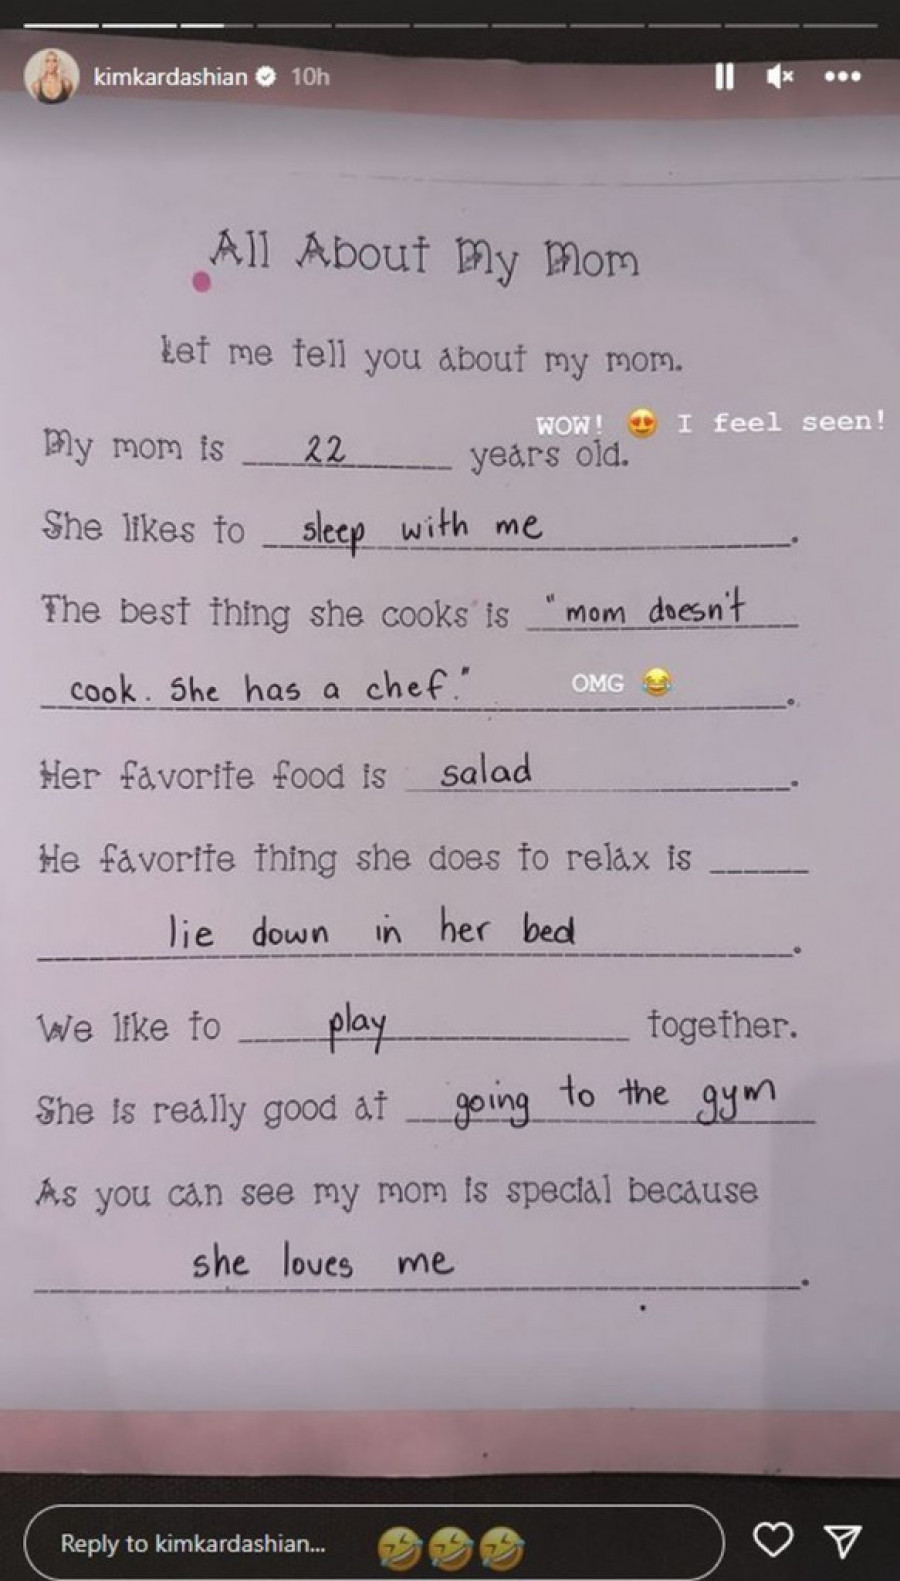 kimkardashian 10h
All About My Mom
Let me tell you about my mom.
WOW! 😍 I feel seen!
My mom is 22 years old.
She likes to sleep with me.
The best thing she cooks is "mom doesn't
cook. She has a chef." OMG 😂.
Her favorite food is salad.
He favorite thing she does to relax is
lie down in her bed.
We like to play together.
She is really good at going to the gym
As you can see my mom is special because
she loves me.
Reply to kimkardashian... 🤣🤣🤣